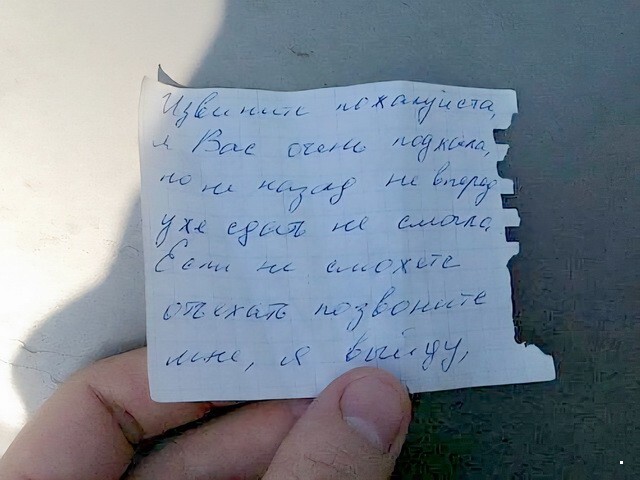 Извинити пожалуйста,
я Вас очень поджала,
но не назад не вперед
уже сдать не смогла.
Если не сможете
отъехать позвоните
мне, я выйду,